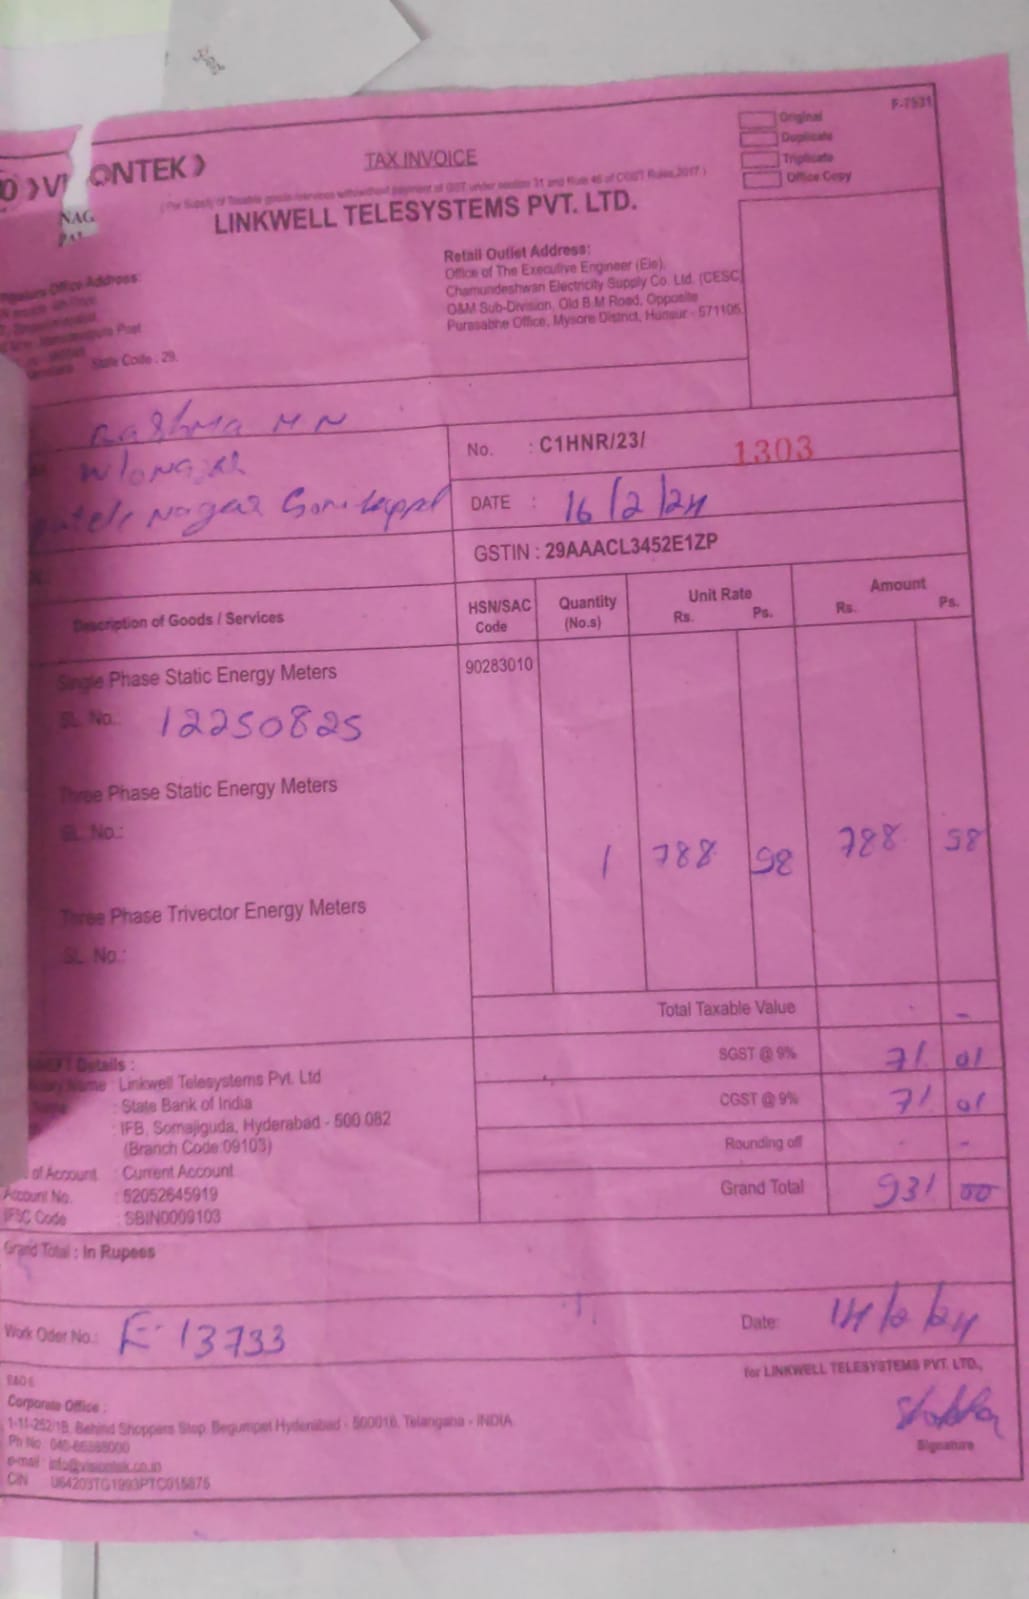 F-7531
Original
Duplicate
Triplicate
Office Copy
ONTEK
TAX INVOICE
(For Supply of Taxable goods/services with/without payment of GST under section 31 and Rule 46 of CGST Rules, 2017)
LINKWELL TELESYSTEMS PVT. LTD.
NAG
Office Address:
State Code : 29.
Retail Outlet Address:
Office of The Executive Engineer (Ele),
Chamundeshwari Electricity Supply Co. Ltd. (CESC)
O&M Sub-Division, Old B.M Road, Opposite
Purasabhe Office, Mysore District, Hunsur - 571105.
Rashma M N
W/o
Nagar
No. : C1HNR/23/ 1303
DATE : 16/2/24
GSTIN : 29AAACL3452E1ZP
Description of Goods / Services HSN/SAC Code Quantity (No.s) Unit Rate Rs. Ps. Amount Rs. Ps.
Single Phase Static Energy Meters 90283010
SL. No.: 12250825
Three Phase Static Energy Meters
SL. No.:
1 788 58 788 58
Three Phase Trivector Energy Meters
SL. No.:
Total Taxable Value -
SGST @ 9% 71 01
CGST @ 9% 71 01
Rounding off -
Grand Total 931 00
Details :
Name : Linkwell Telesystems Pvt. Ltd
: State Bank of India
: IFB, Somajiguda, Hyderabad - 500 082
(Branch Code:09103)
of Account : Current Account
Account No. : 52052645919
IFSC Code : SBIN0009103
Grand Total : In Rupees
Work Oder No.: E-13733
Date: 14/2/24
for LINKWELL TELESYSTEMS PVT. LTD.,
Signature
Corporate Office :
1-11-252/1B, Behind Shoppers Stop, Begumpet Hyderabad - 500016, Telangana - INDIA
Ph No : 040-66388000
e-mail : info@visiontek.co.in
CIN : U64203TG1993PTC015875